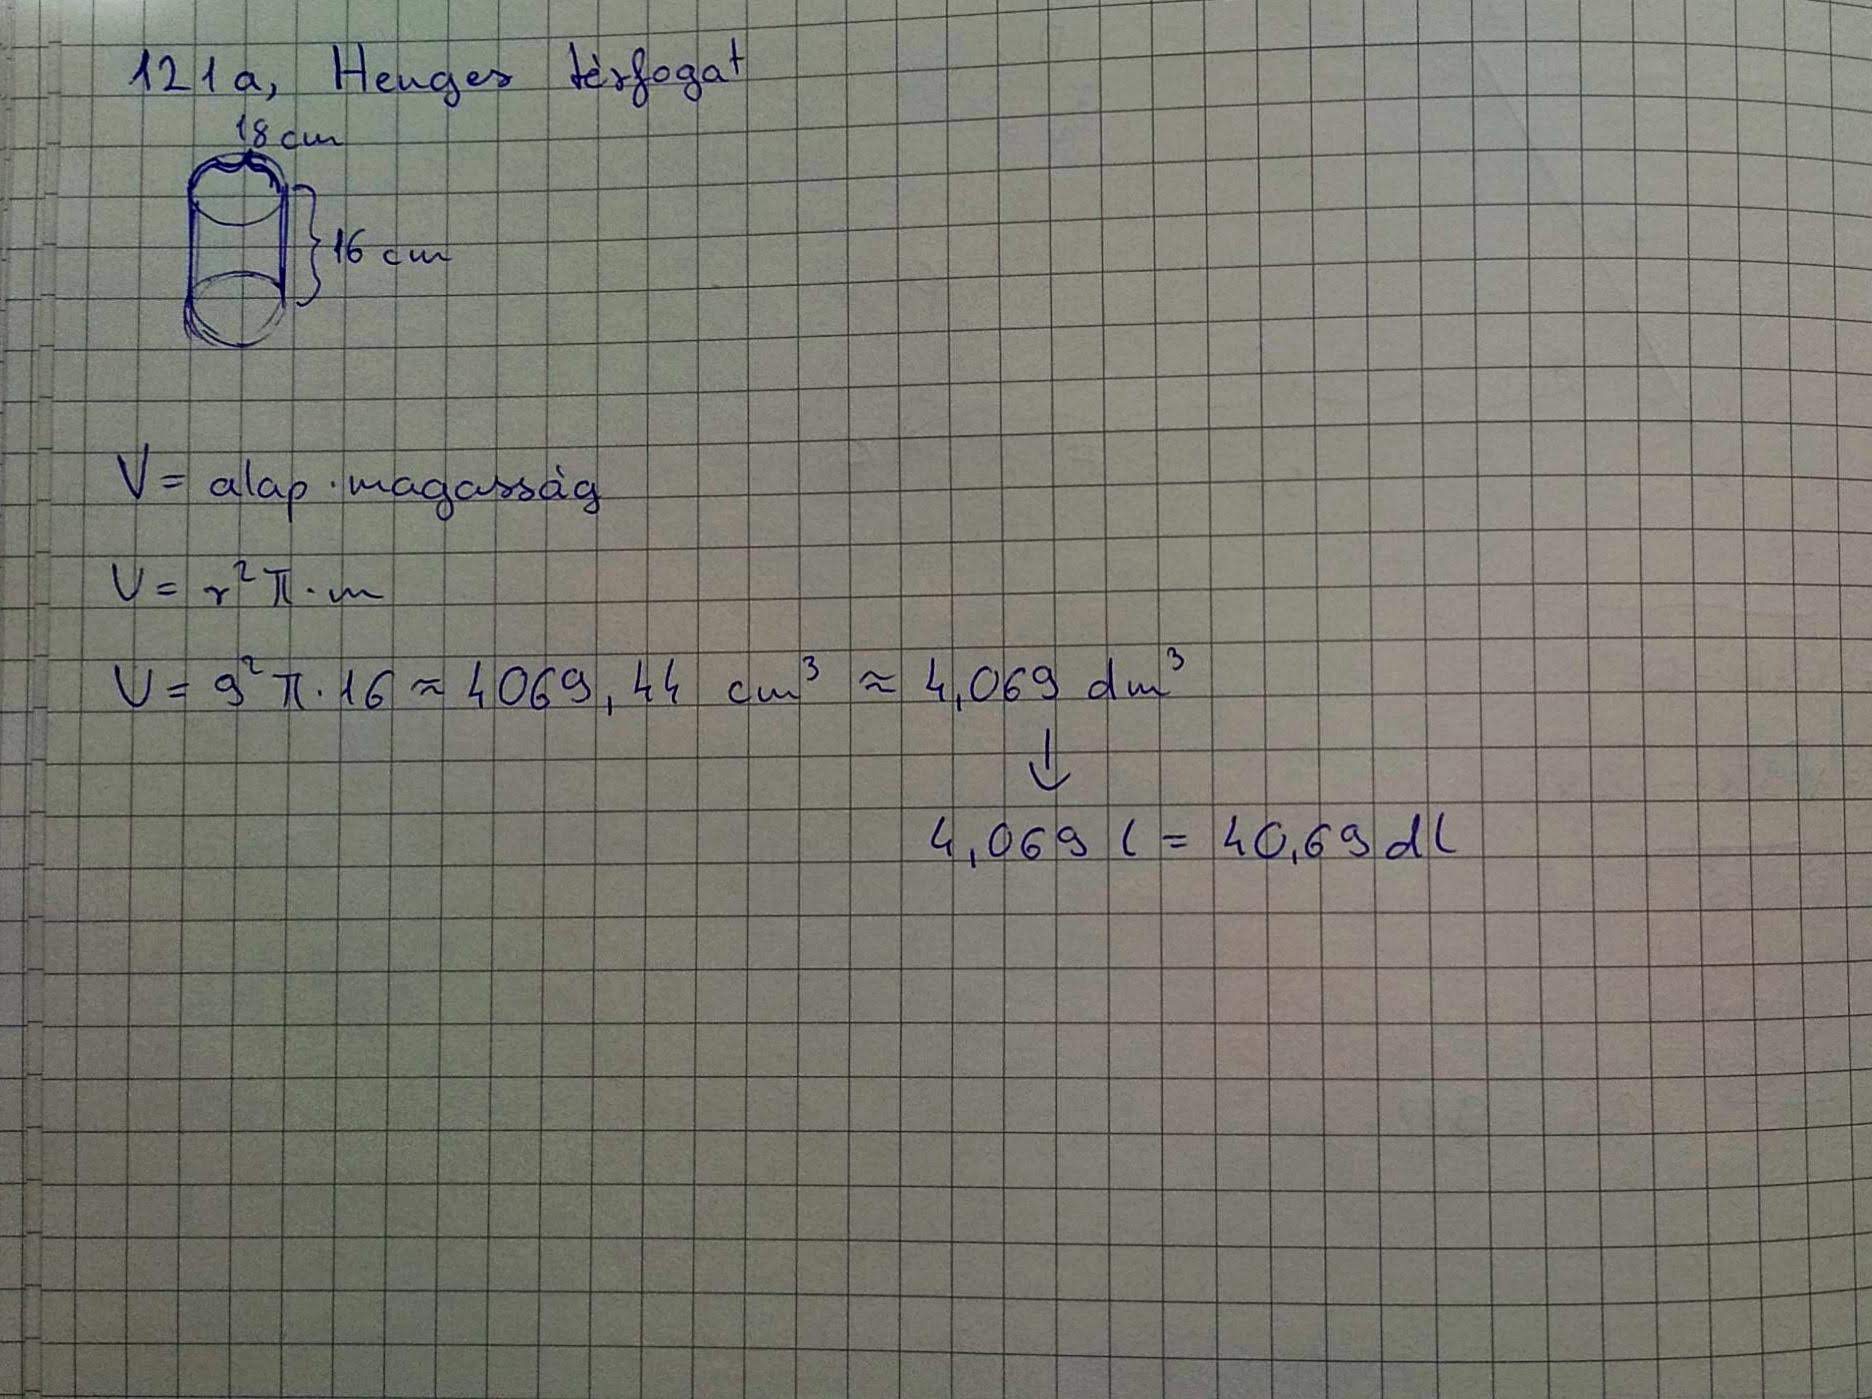 121a, Henger térfogat
18 cm
16 cm
V = alap · magasság
V = r²π · m
V = 9²π · 16 ≈ 4069,44 cm³ ≈ 4,069 dm³
↓
4,069 l = 40,69 dl